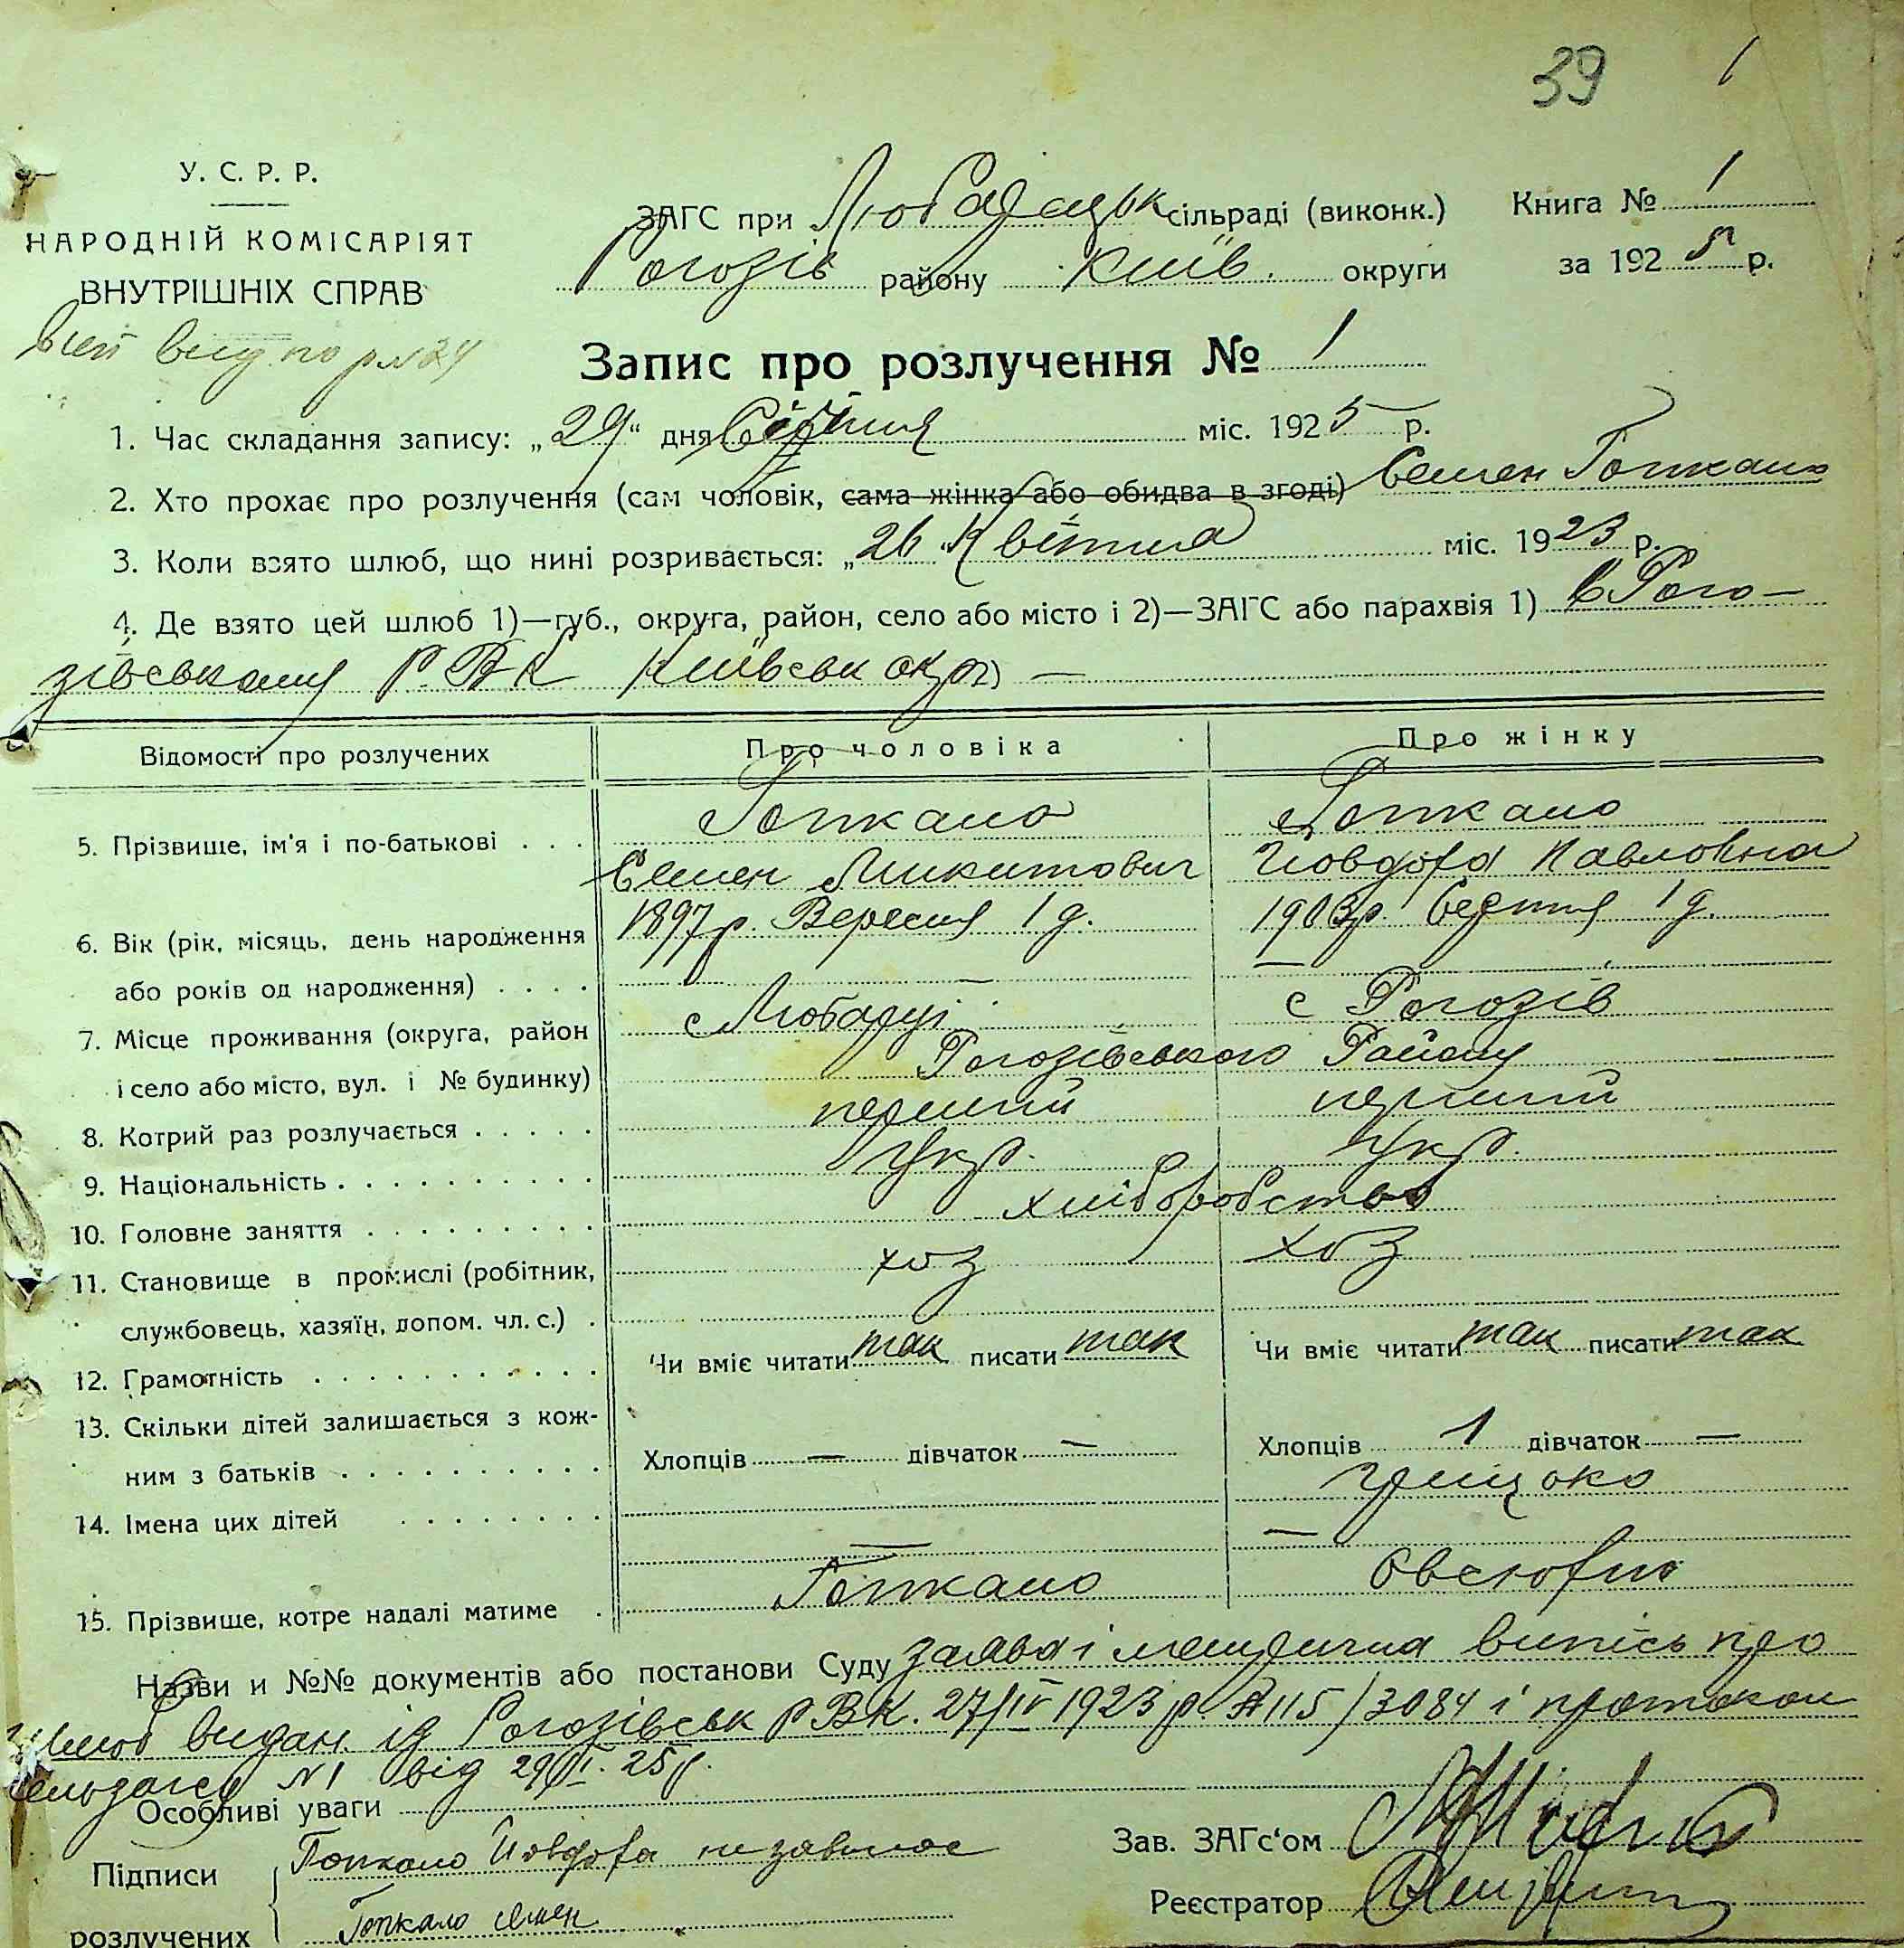 39 1
У. С. Р. Р.
НАРОДНІЙ КОМІСАРІЯТ
ВНУТРІШНІХ СПРАВ
ЗАГС при Любарецьк сільраді (виконк.) Книга № 1
Рогозів району Київ. округи за 1925 р.
Запис про розлучення № 1
1. Час складання запису: „29“ дня Січня міс. 1925 р.
2. Хто прохає про розлучення (сам чоловік, сама жінка або обидва в згоді) Семен Гопкало
3. Коли взято шлюб, що нині розривається: „26“ Квітня міс. 1923 р.
4. Де взято цей шлюб 1)—губ., округа, район, село або місто і 2)—ЗАГС або парахвія 1) в Рого-
зівському Р.В.К Київськ окр 2) —
Відомості про розлучених Про чоловіка Про жінку
5. Прізвище, ім'я і по-батькові . . . Гопкало Гопкало
Семен Микитович Йовдоха Павловна
6. Вік (рік, місяць, день народження 1897 р. Вересня 1 д. 1903 р. Серпня 1 д.
або років од народження) . . . . — —
7. Місце проживання (округа, район с Любарці с Рогозів
і село або місто, вул. і № будинку) Рогозівського Району
8. Котрий раз розлучається . . . . . перший перший
9. Національність . . . . . . . . . . Укр. Укр.
10. Головне заняття . . . . . . . . хліборобство
11. Становище в промислі (робітник, хоз хоз
службовець, хазяїн, допом. чл. с.) .
12. Грамотність . . . . . . . . . . . Чи вміє читати так писати так Чи вміє читати так писати так
13. Скільки дітей залишається з кож-
ним з батьків . . . . . . . . . . Хлопців — дівчаток — Хлопців 1 дівчаток —
14. Імена цих дітей . . . . . . . . Грицько
— —
15. Прізвище, котре надалі матиме . Гопкало
Назви и №№ документів або постанови Суду заява і метрична випісь про
шлюб видан. ід Рогозівськ РВК. 27/IV 1923 р № 115/3084 і протокол
сельзагсу №1 від 29/I. 25 р.
Особливі уваги
Підписи Гопкало Йовдоха
розлучених Гопкало семен
Зав. ЗАГс'ом
Реєстратор